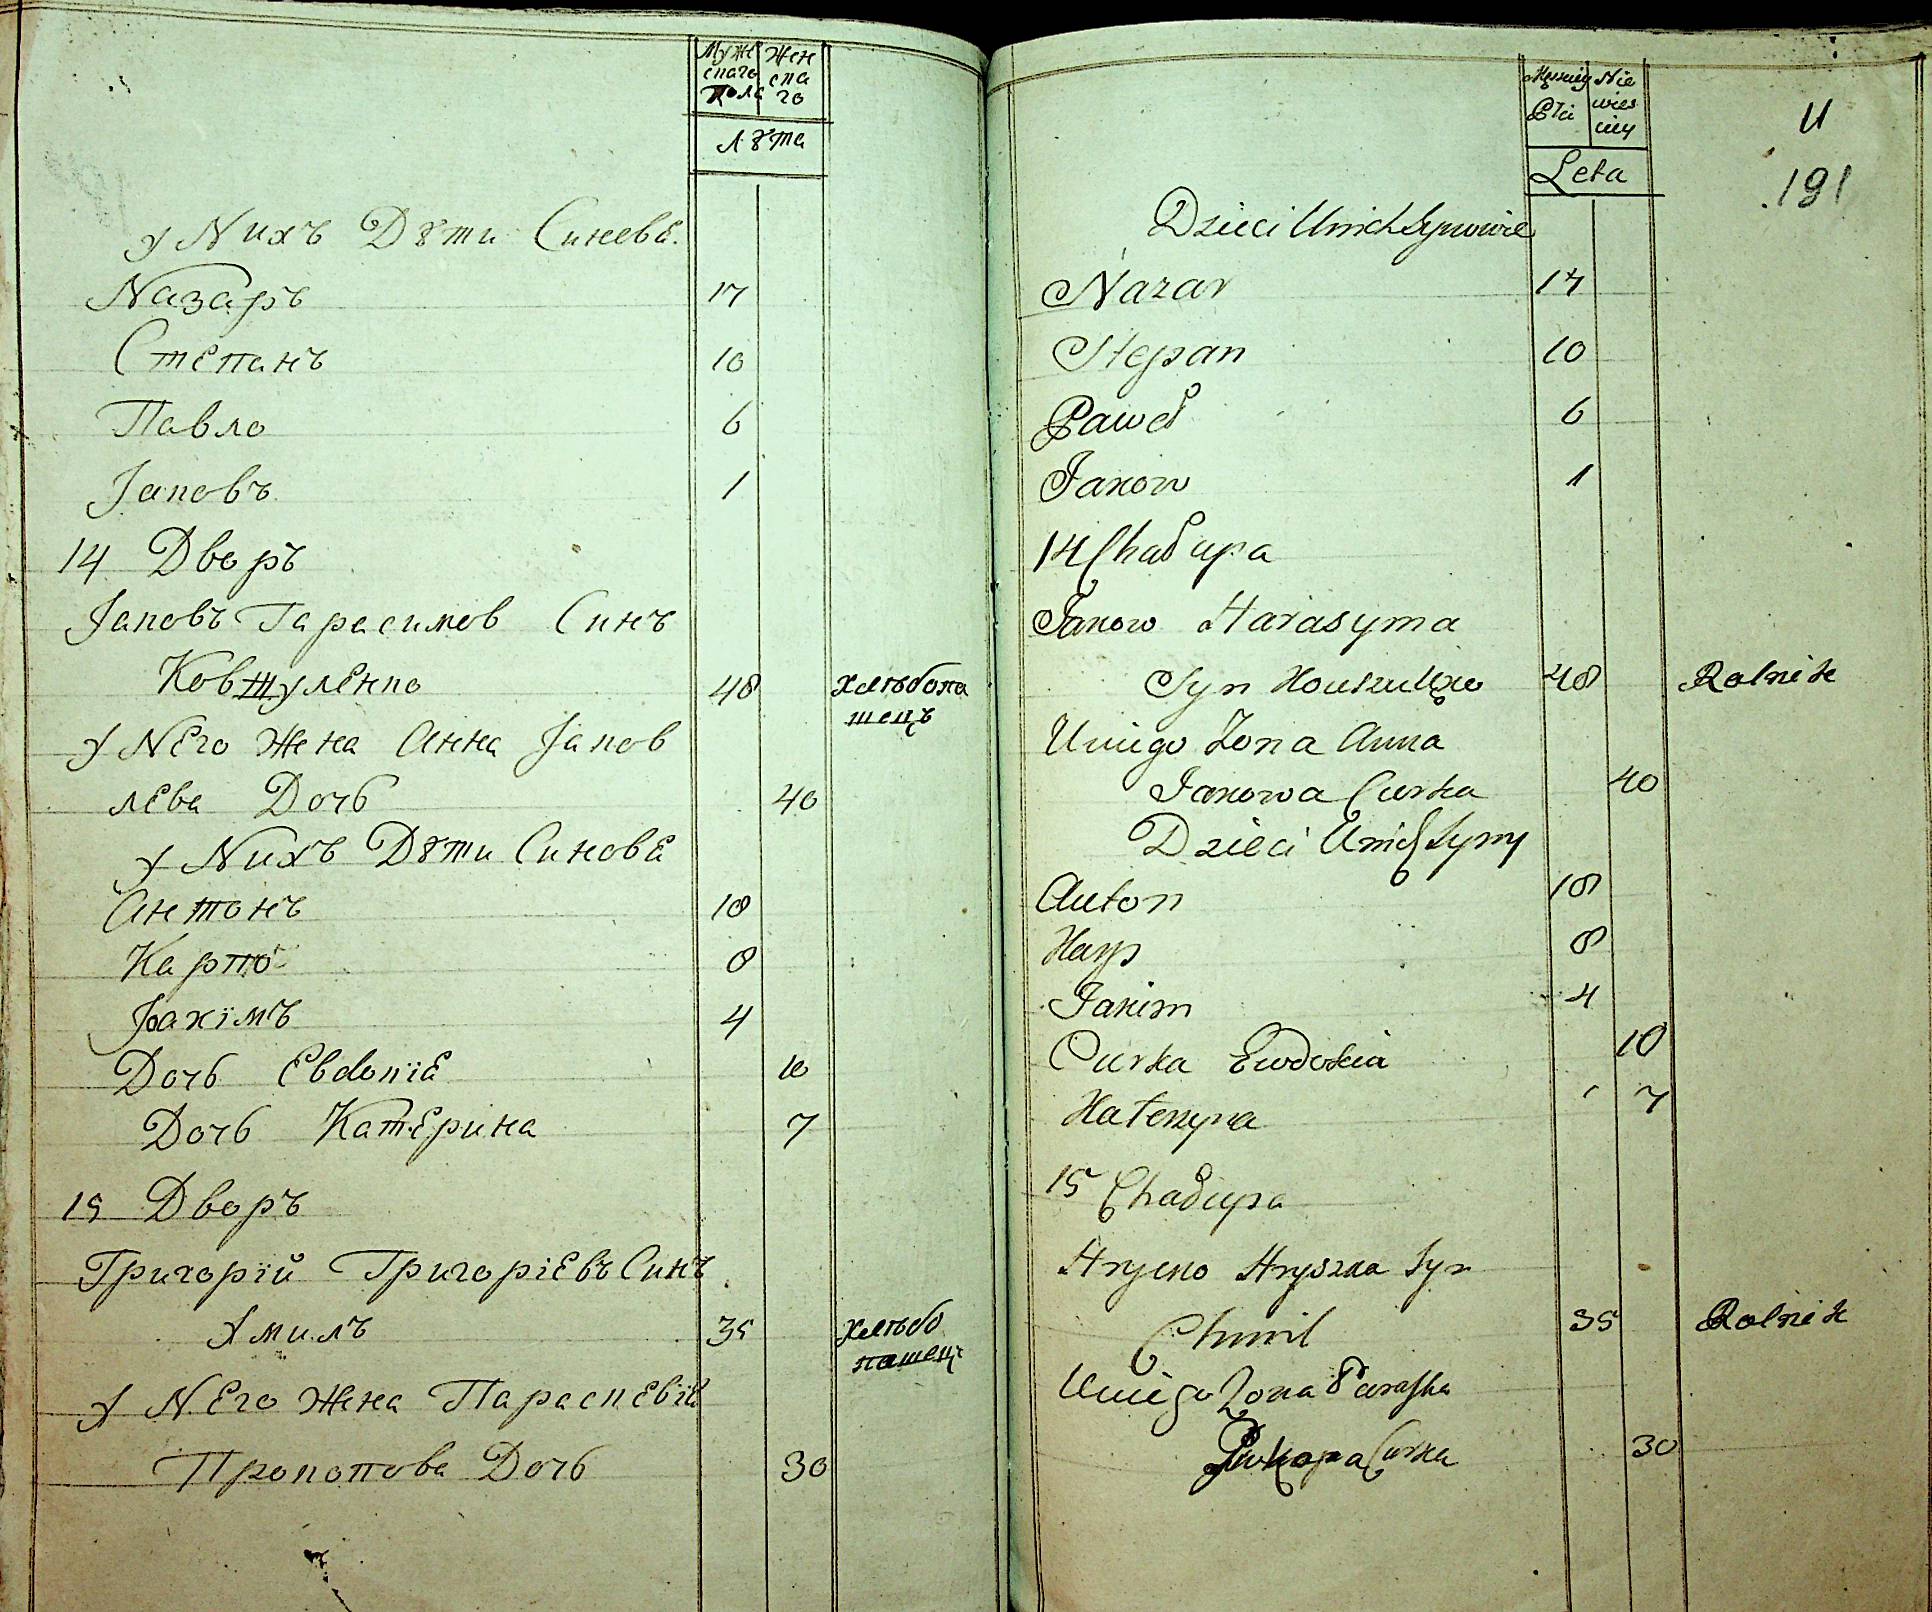 Муже
скаго
Пола
Жен
ска
го
Лѣта
У Нихъ Дѣти Синове.
Назаръ 17
Степанъ 10
Павло 6
Іаковъ 1
14 Дворъ
Іаковъ Гарасимов Синъ
Ковтуленко 48 хлѣбопа
шецъ
У Него Жена Анна Іаков
лева Дочь 40
У Нихъ Дѣти Синове
Антонъ 18
Карпо 8
Іоахімъ 4
Дочь Евдокіе 10
Дочь Катеріна 7
15 Дворъ
Григорій Григоріевъ Синъ
Хмилъ 35 хлѣбо
пашецъ
У Него Жена Параскевіе
Прокопова Дочь 30
Męzkiey
Płci
Nie
wies
ciey
Leta
U
191
Dzieci U nich Synowie
Nazar 17
Stepan 10
Paweł 6
Jakow 1
14 Chałupa
Jakow Harasyma
Syn 48 Rolnik
U niego Żona Anna
Jakowa Curka 40
Dzieci U nich Syny
Anton 18
Karp 8
Jakim 4
Curka Ewdokia 10
Katerzyna 7
15 Chałupa
Hrycko Hryszka Syn
Chmil 35 Rolnik
U niego Zona Paraska
Prokopa Curka 30